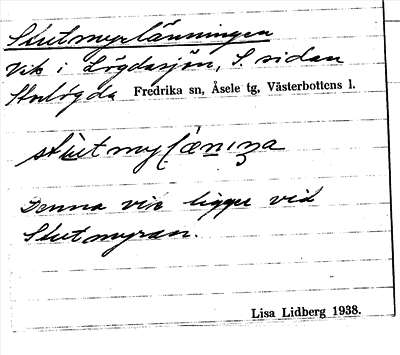 Stutmyrlänningen
Vik i Lögdasjön, S. sidan
Storlögda Fredrika sn, Åsele tg, Västerbottens l.
Denna vik ligger vid
Stutmyran.
Lisa Lidberg 1938.